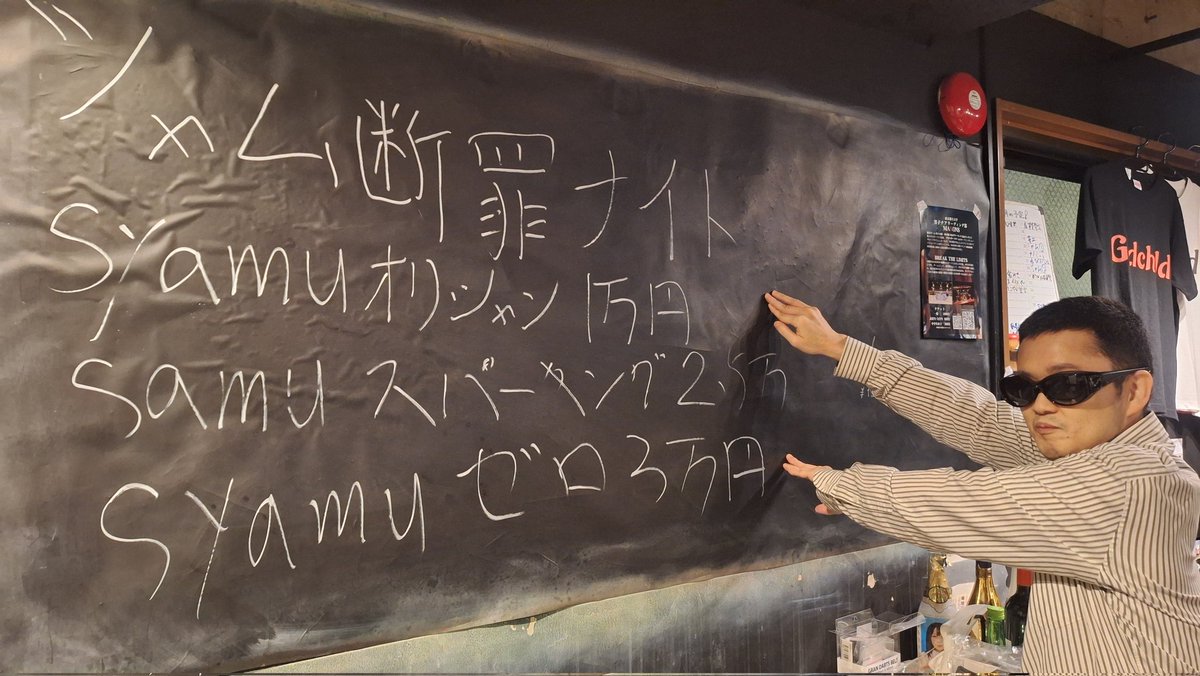 シャム断罪ナイト
Syamuオリシャン 1万円
Samuスバーキング2.5万
Syamuゼロ3万円
BREAK THE LIMITS
Gdchld